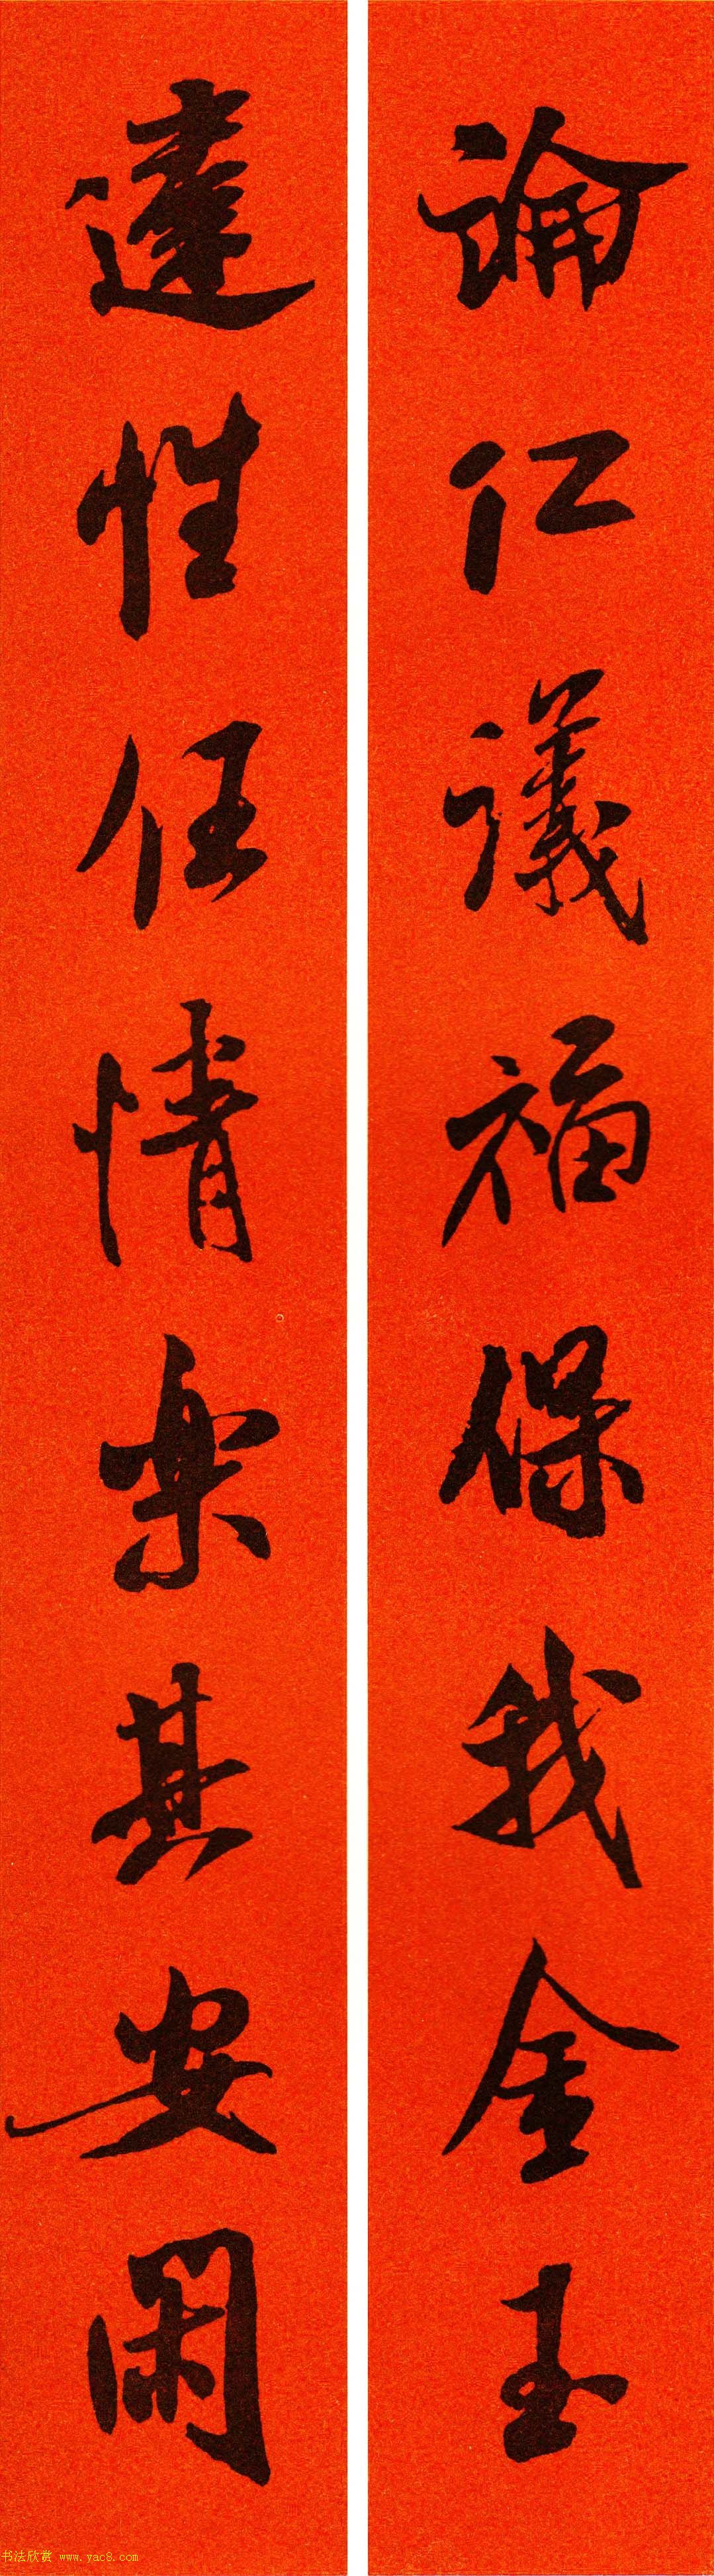 論仁議福保我金玉
達性任情樂其安閑
书法欣赏 www.yac8.com